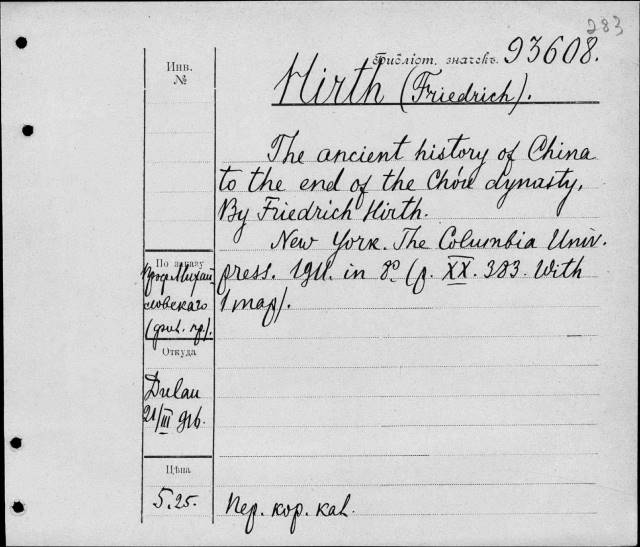 283
Библіот. значекъ. 93608.
Инв.
№
Hirth (Friedrich).
The ancient history of China
to the end of the Chóu dynasty.
By Friedrich Hirth.
New York. The Columbia Univ.
press. 1911. in 8º (p. XX. 383. With
1 map).
По заказу
Проф. Михай
ловскаго
Откуда
Dulau
21/III 916.
Цѣна
5.25.
Пер. кор. кал.